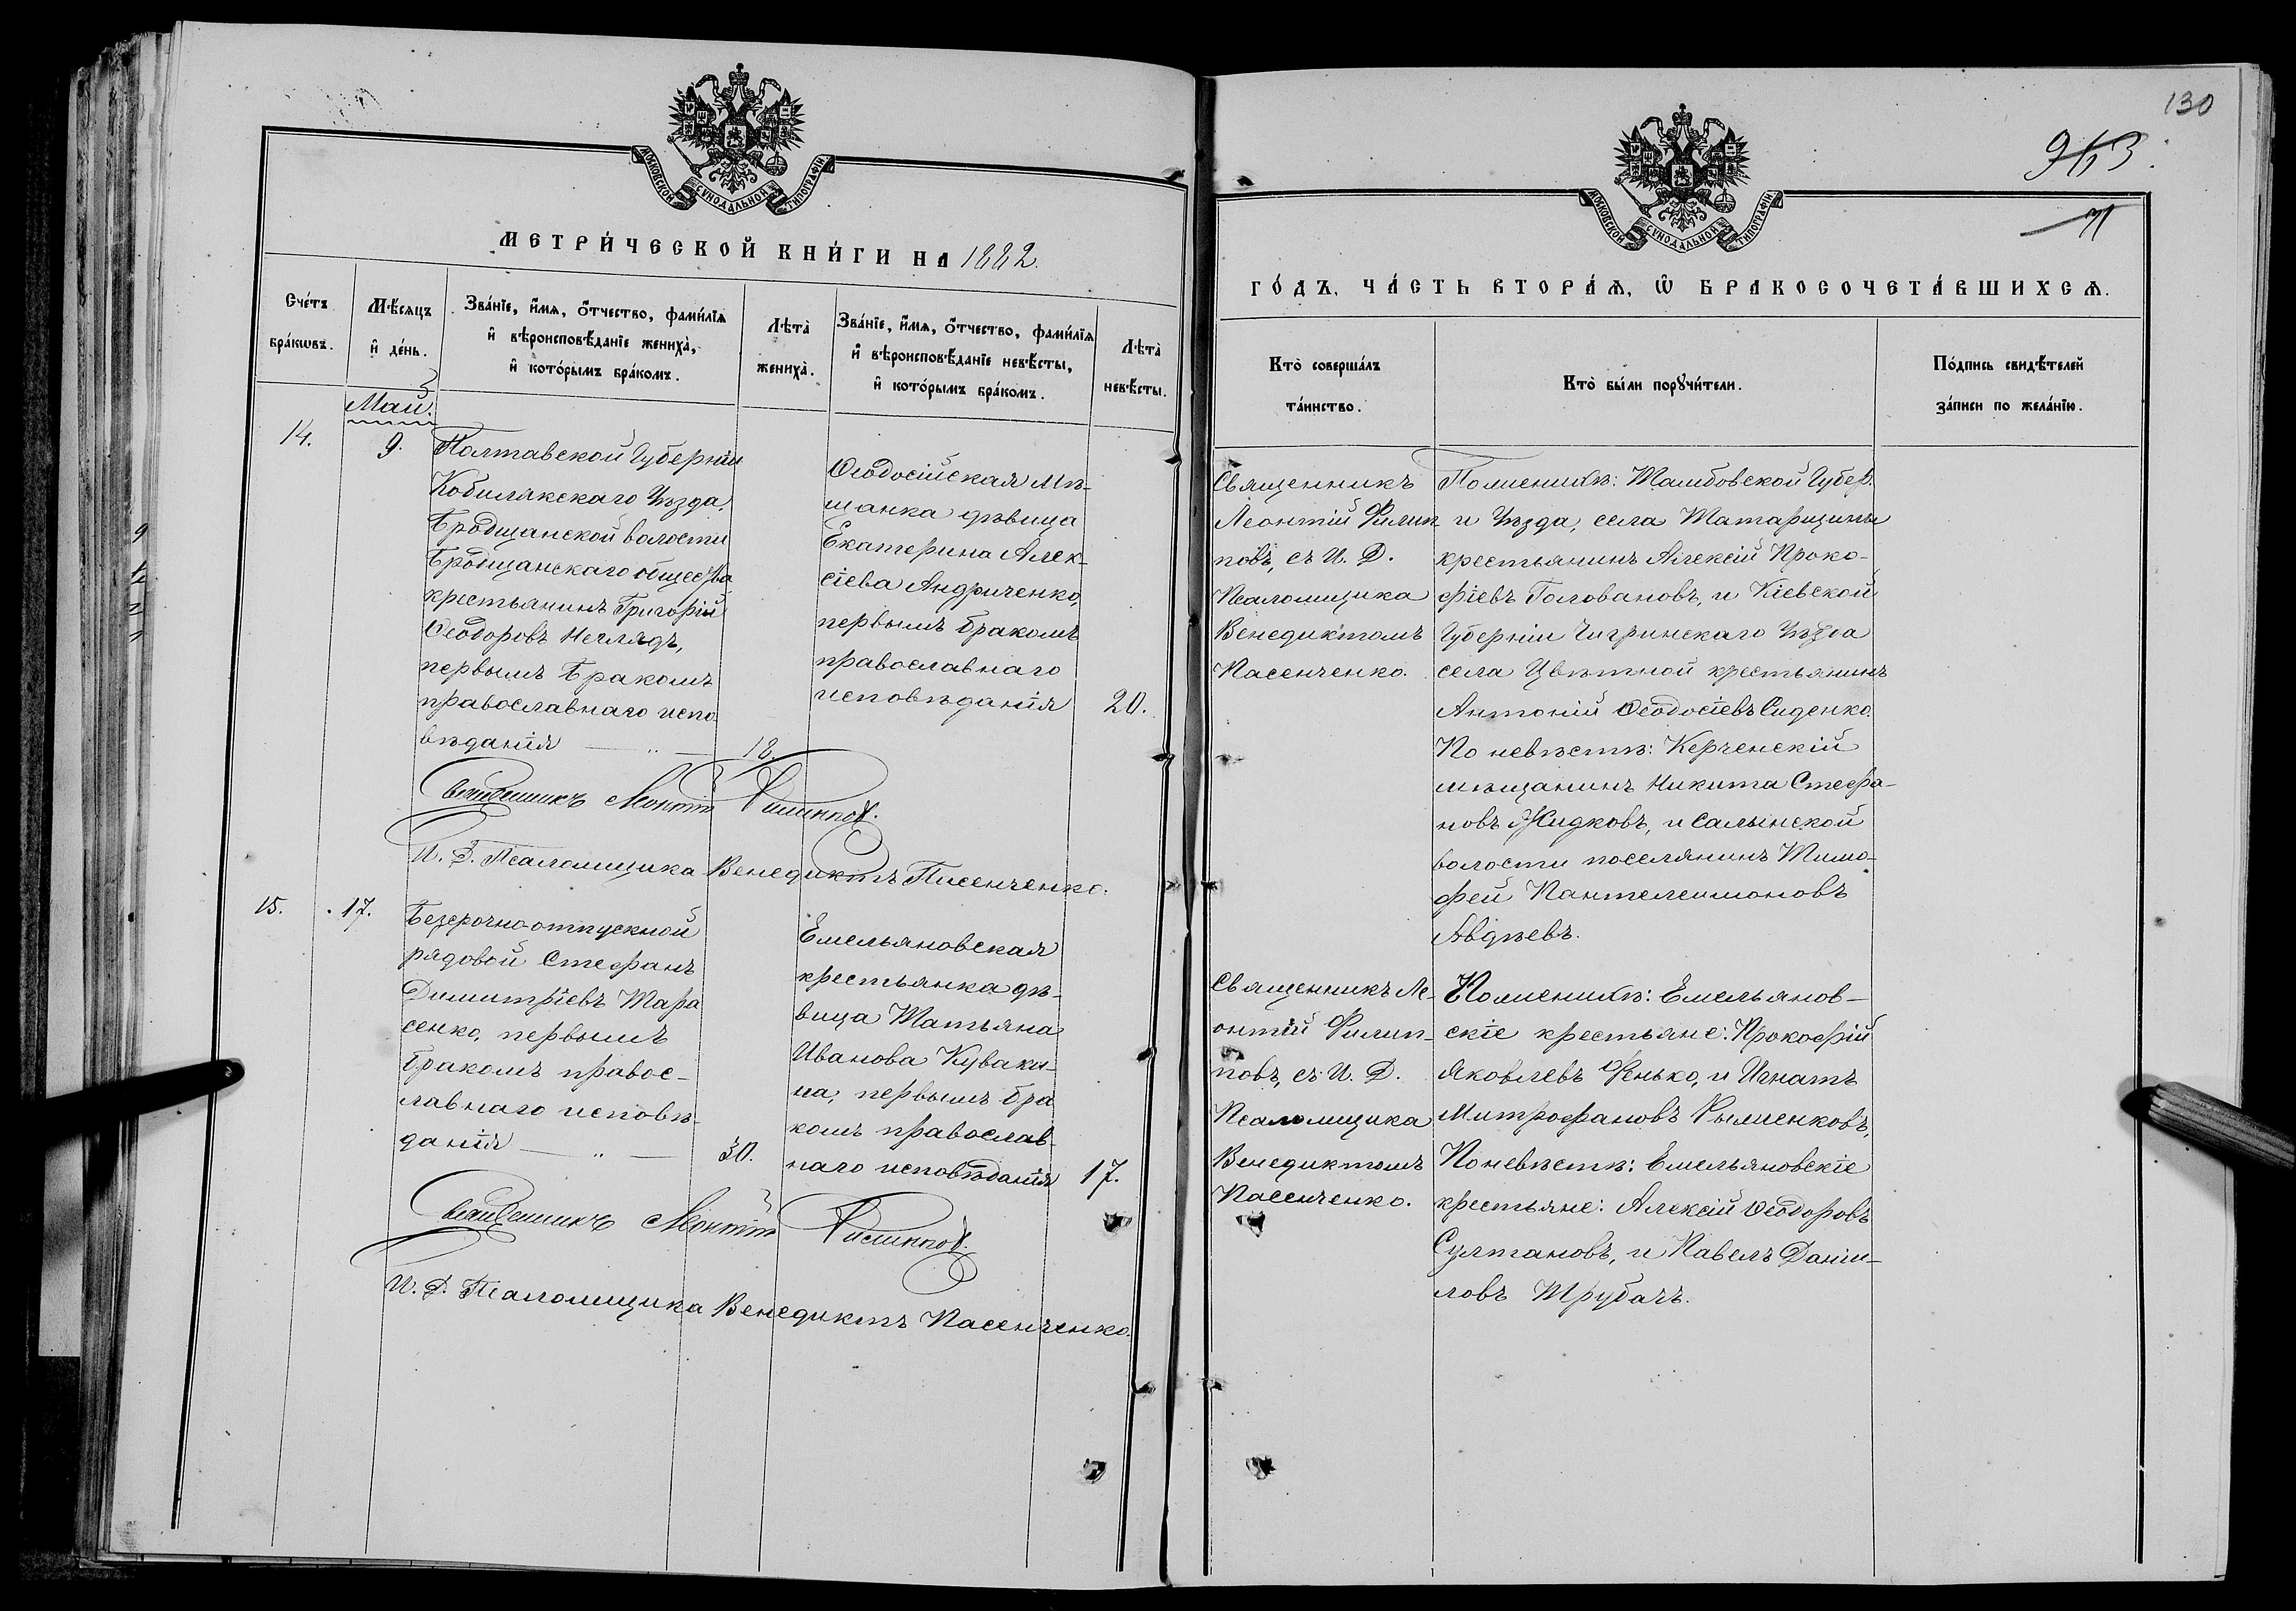 130
963
71
МОСКОВСКОЙ СѴНОДАЛЬНОЙ ТИПОГРАФІИ
МЕТРИ́ЧЕСКОЙ КНИ́ГИ НА 1882.
Сче́тъ бра́кѡвъ.
Мѣ́сяцъ и҆ де́нь.
Зва́нїе, и҆́мѧ, ѻ҆́тчество, фами́лїѧ
и҆ вѣроисповѣ́данїе жениха̀,
и҆ кото́рымъ бра́комъ.
Лѣта̀ жениха̀.
Зва́нїе, и҆́мѧ, ѻ҆́тчество, фами́лїѧ
и҆ вѣроисповѣ́данїе невѣ́сты,
и҆ кото́рымъ бра́комъ.
Лѣта̀ невѣ́сты.
Май.
14.
9.
Полтавской Губерніи
Кобилякскаго Уѣзда,
Бродщанской волости
Бродщанскаго общества
крестьянинъ Григорій
Ѳеодоровъ Неглядъ,
первымъ бракомъ
православнаго испо
вѣданія — „ —
18.
Ѳеодосійская мѣ-
щанка дѣвица
Екатерина Алек-
сіева Андриченко,
первымъ бракомъ
православнаго
исповѣданія
20.
Священникъ Леонтій Филиппов.
И. Д. Псаломщика Венедиктъ Пасенченко.
15.
17.
Безсрочно-отпускной
рядовой Стефанъ
Димитріевъ Тара
сенко, первымъ
бракомъ правос-
лавнаго исповѣ-
данія — „ —
30.
Емельяновская
крестьянка дѣ-
вица Татьяна
Иванова Куваки-
на, первымъ бра
комъ православ-
наго исповѣданія
17.
Священникъ Леонтій Филиппов.
И. Д. Псаломщика Венедиктъ Пасенченко.
МОСКОВСКОЙ СѴНОДАЛЬНОЙ ТИПОГРАФІИ
ГО́ДЪ, ЧА́СТЬ ВТОРА́Ѧ, Ѡ҆ БРАКОСОЧЕТА́ВШИХСѦ.
Кто̀ соверша́лъ
та́инство.
Кто̀ бы́ли порꙋчи́тели.
По́дпись свидѣ́телей
за́писи по жела́нїю.
Священникъ
Леонтій Филип
повъ, съ И. Д.
Псаломщика
Венедиктомъ
Пасенченко.
По женихѣ: Тамбовской Губер.
и Уѣзда, села Татарщины
крестьянинъ Алексій Проко-
фіевъ Головановъ, и Кіевской
Губерніи Чигринскаго Уѣзда
села Цвѣтной крестьянинъ
Антоній Ѳеодосіевъ Сиденко.
По невѣстѣ: Керченскій
мѣщанинъ Никита Стефа-
новъ Жидковъ, и Салынской
волости поселянинъ Тимо-
фей Пантелеимоновъ
Авдѣевъ.
Священникъ Ле-
онтій Филип-
повъ, съ И. Д.
Псаломщика
Венедиктомъ
Пасенченко.
По женихѣ: Емельянов-
скіе крестьяне: Прокофій
Яковлевъ Фенько, и Игнатъ
Митрофановъ Рыменковъ,
По невѣстѣ: Емельяновскіе
крестьяне: Алексій Ѳеодоровъ
Султановъ, и Павелъ Даніи-
ловъ Трубачъ.